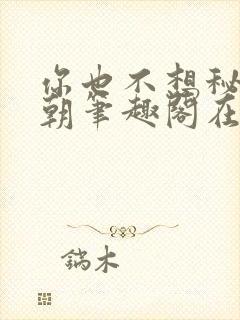 你也不想秘
朝笔趣阁在
鎬木